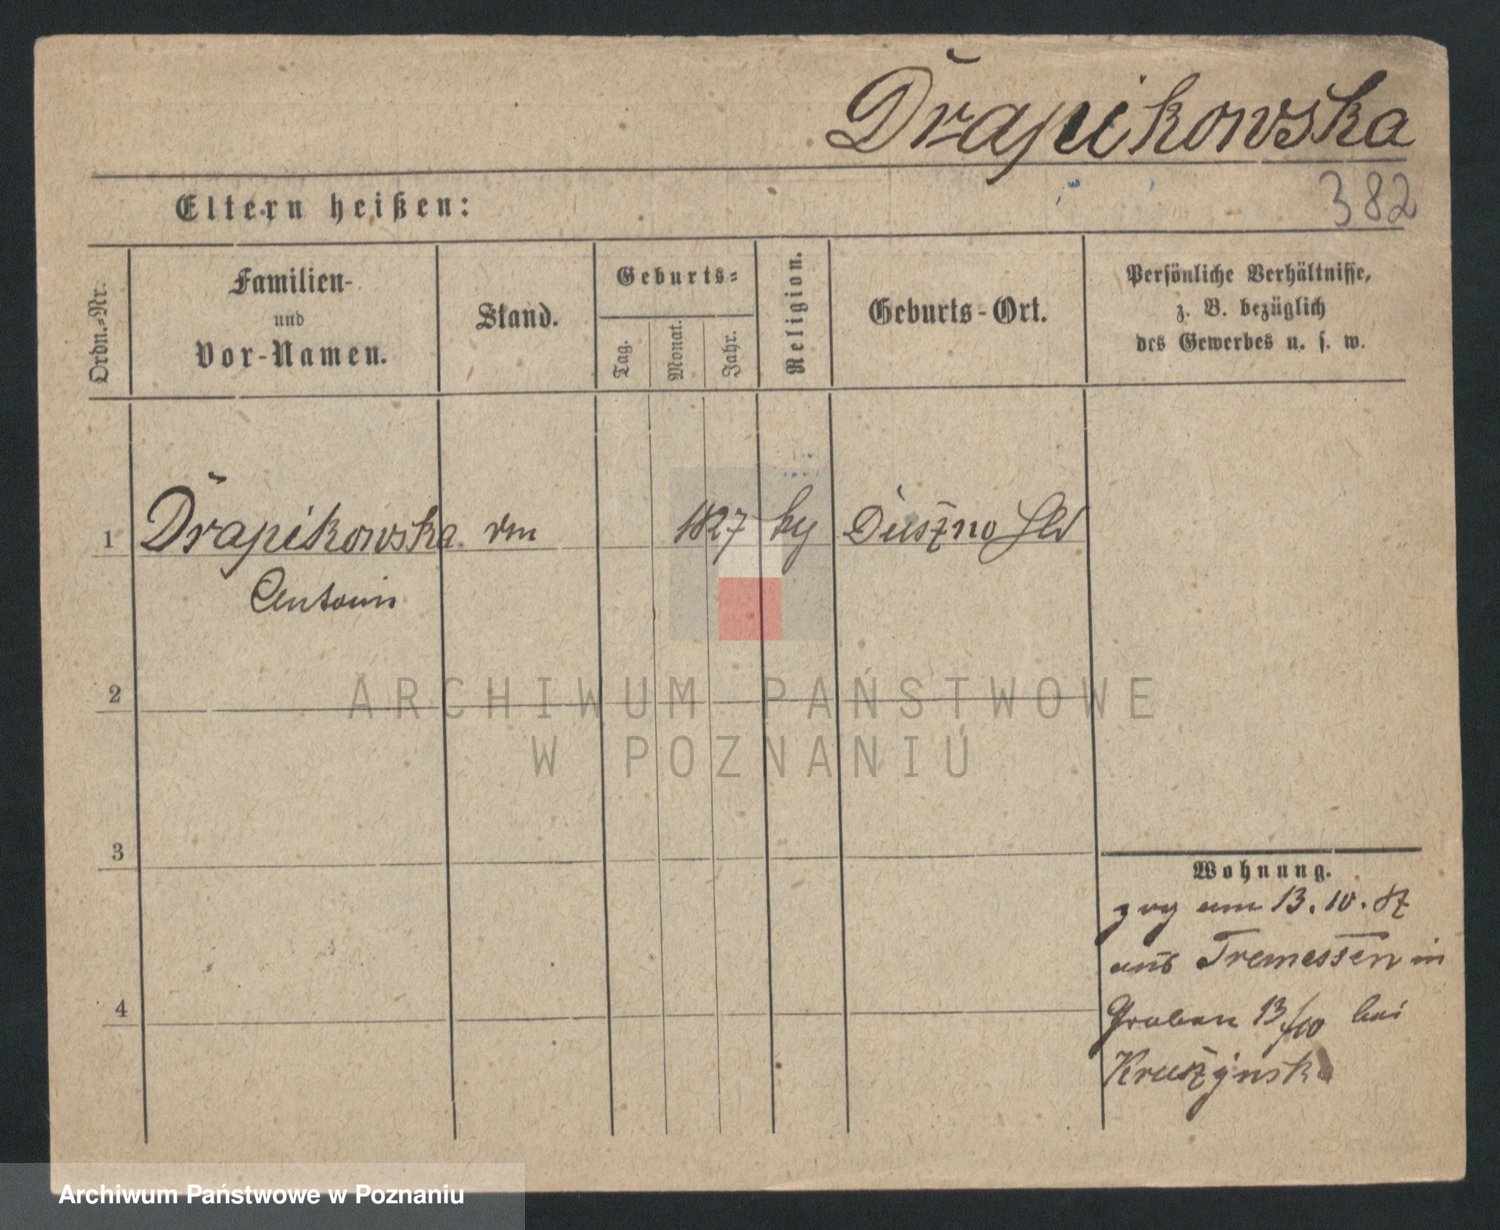 Drapikowska
382
Eltern heißen:
Ordn.-Nr.
Familien-
und
Vor-Namen.
Stand.
Geburts-
Tag.
Monat.
Jahr.
Religion.
Geburts-Ort.
Persönliche Verhältnisse,
z. B. bezüglich
des Gewerbes u. s. w.
1 Drapikowska 1827 Duszno
Antonie
2
ARCHIWUM PAŃSTWOWE
W POZNANIU
3
Wohnung.
zog am 13.10.87
aus Tremessen in
Graben 13/10 bei
Kruszynska
4
Archiwum Państwowe w Poznaniu